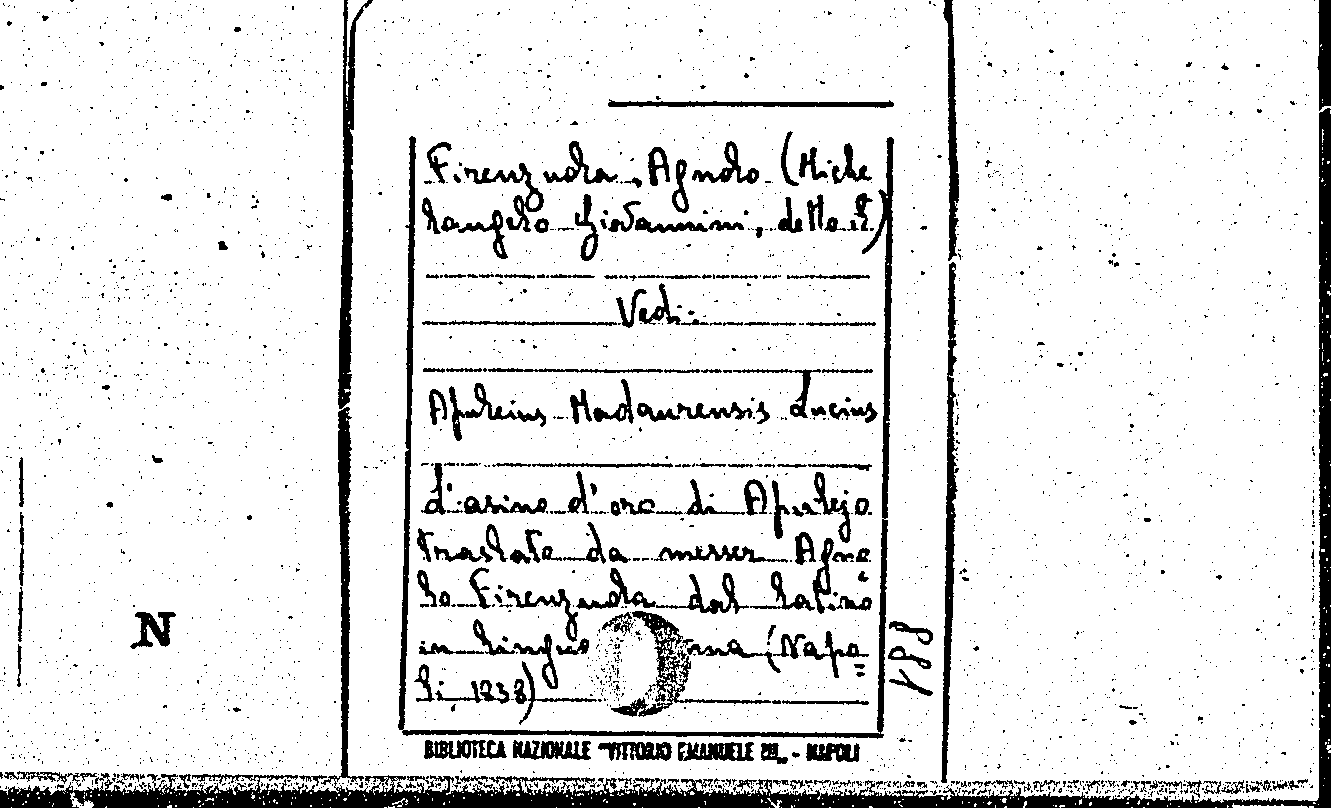 Firenzuola, Agnolo (Miche
langelo Giovannini, detto il)
Vedi:
Apuleius Madaurensis Lucius
L'asino d'oro di Apulejo
traslato da messer Agno
lo Firenzuola dal latino
in lingua (Napo=
li, 1838)
884
N
BIBLIOTECA NAZIONALE "VITTORIO EMANUELE III" - NAPOLI